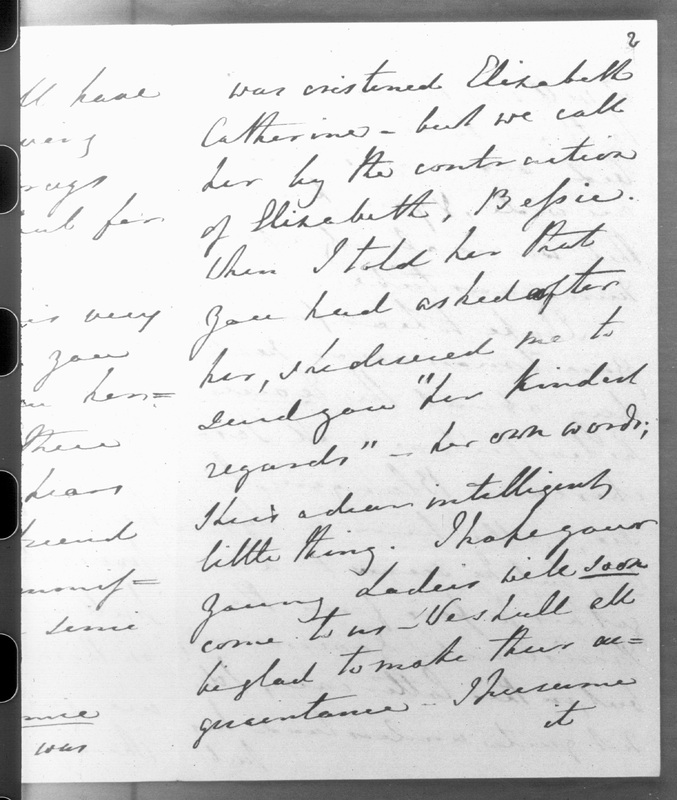 2
ll have
very
rugs
but for
is very
you
her=
there
hears
friend
=
time
was
was cristened Elizabeth
Catherine - but we call
her by the contraction
of Elizabeth, Bessie.
When I told her that
you had asked after
her, she desired me to
send you "her kindest
regards" - her own words;
She is a dear intelligent
little thing. I hope your
young Ladies will soon
come to us - We shall all
be glad to make their ac=
quaintance - I presume
it